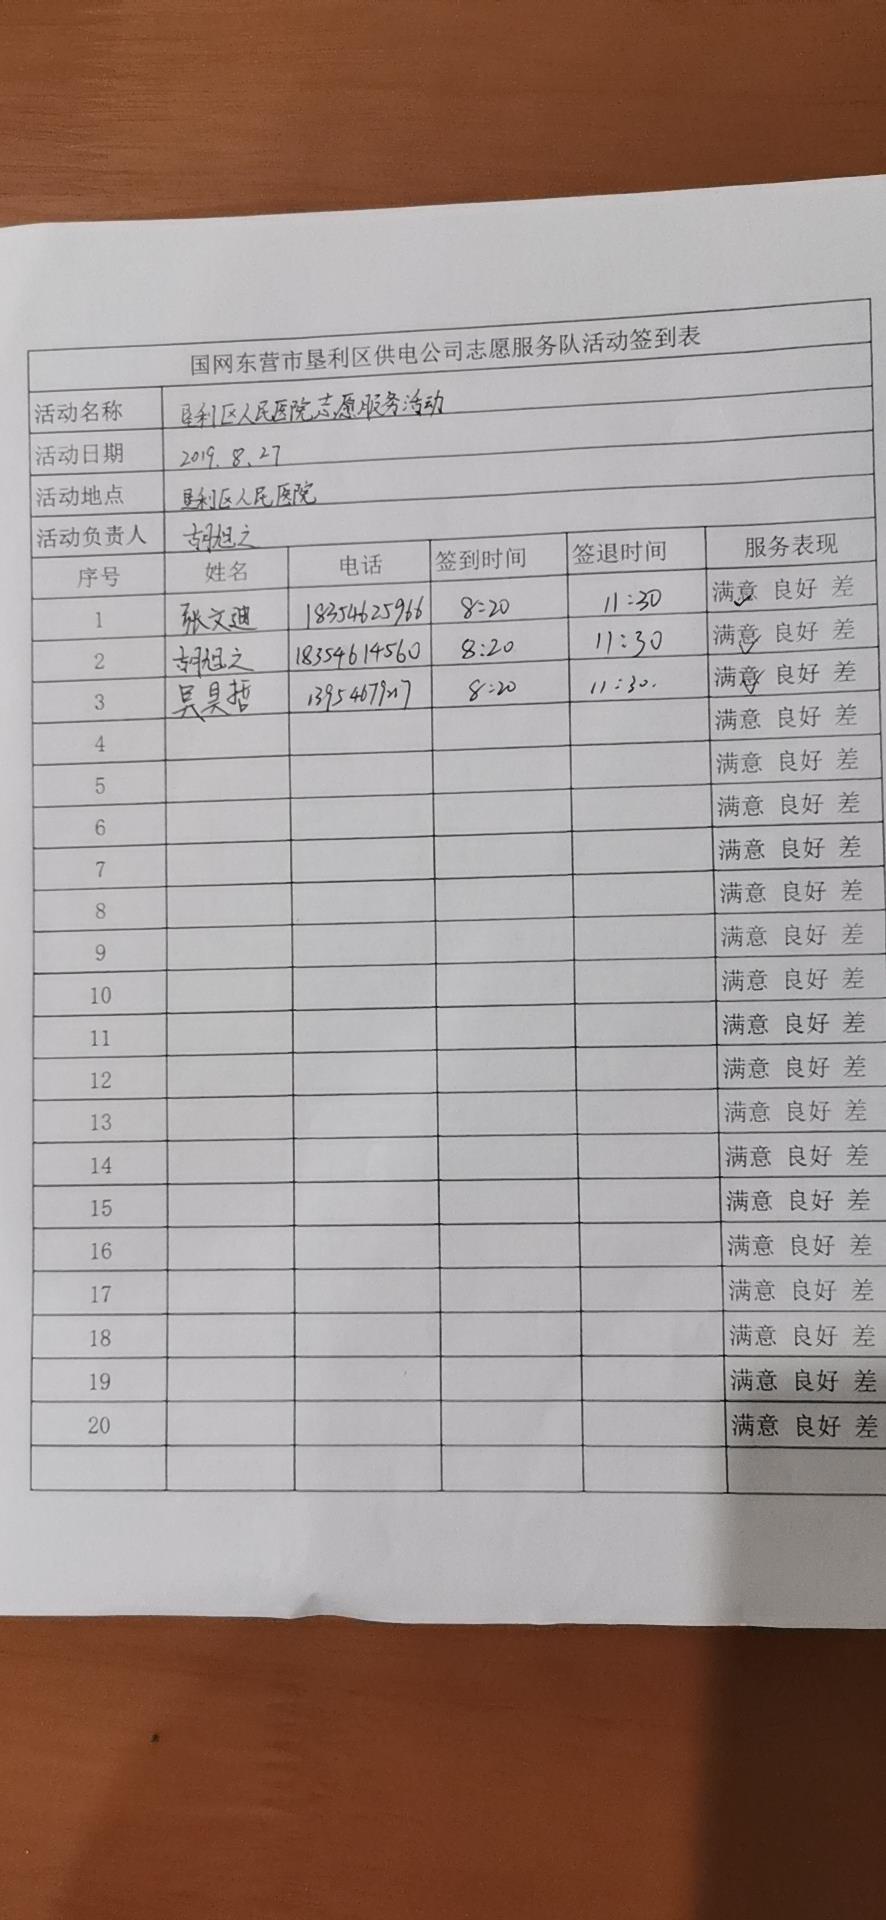 国网东营市垦利区供电公司志愿服务队活动签到表
活动名称 垦利区人民医院志愿服务活动
活动日期 2019.8.27
活动地点 垦利区人民医院
活动负责人 胡旭之
序号 姓名 电话 签到时间 签退时间 服务表现
1 张文迪 18354625966 8:20 11:30 满意 良好 差
2 胡旭之 18354614560 8:20 11:30 满意 良好 差
3 吴昊哲 8:20 11:30. 满意 良好 差
4 满意 良好 差
5 满意 良好 差
6 满意 良好 差
7 满意 良好 差
8 满意 良好 差
9 满意 良好 差
10 满意 良好 差
11 满意 良好 差
12 满意 良好 差
13 满意 良好 差
14 满意 良好 差
15 满意 良好 差
16 满意 良好 差
17 满意 良好 差
18 满意 良好 差
19 满意 良好 差
20 满意 良好 差